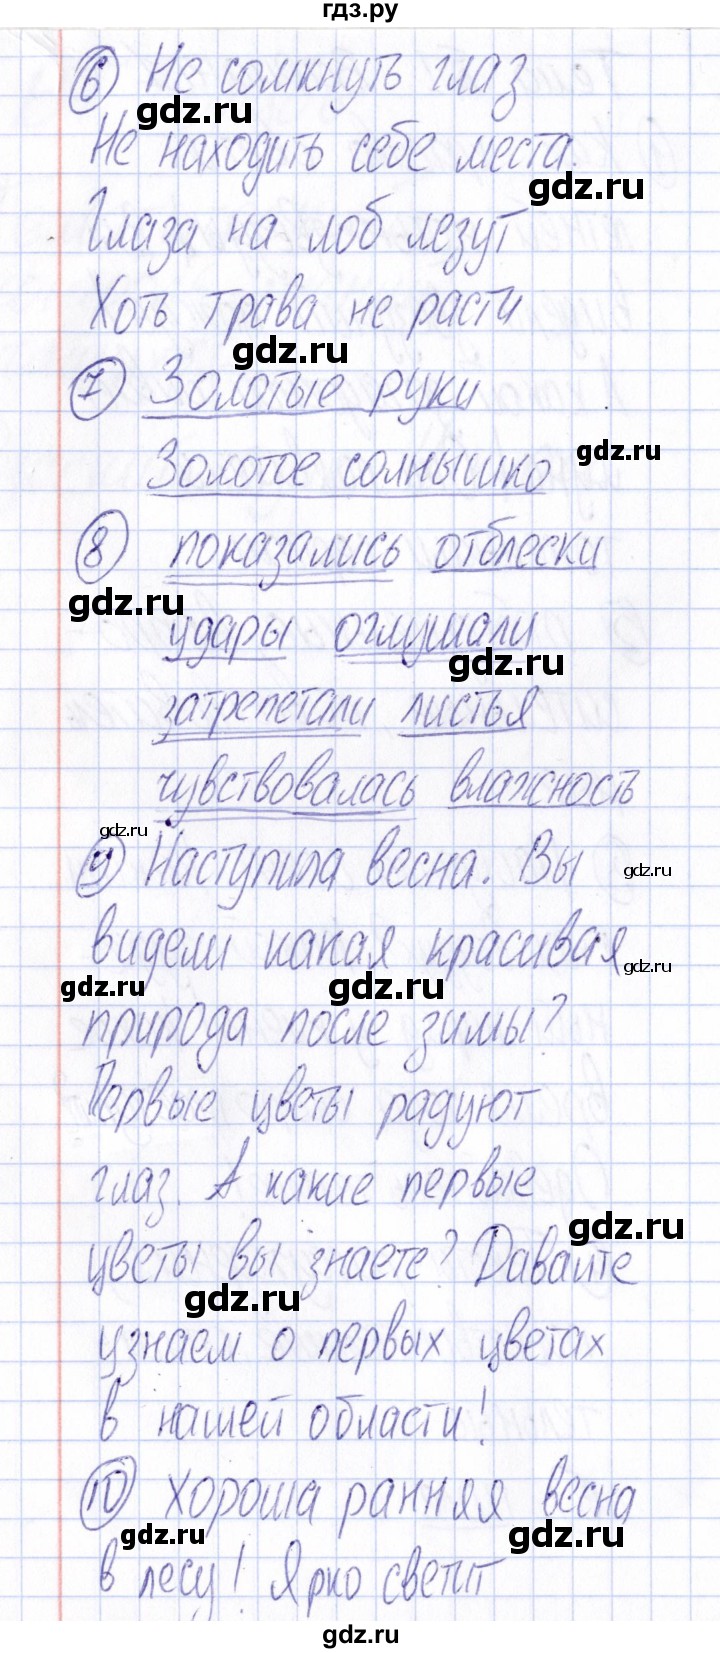 гдз.ру
⑥ Не сомкнуть глаз
gdz.ru
Не находить себе места.
gdz.ru
Глаза на лоб лезут
Хоть трава не расти
gdz.ru
⑦ Золотые руки
gdz.ru
Золотое солнышко
⑧ показались отблески
gdz.ru
удары оглушали
gdz.ru
затрепетали листья
чувствовалась влажность
gdz.ru
⑨ Наступила весна. Вы
gdz.ru
видели какая красивая
gdz.ru
gdz.ru gdz.ru
природа после зимы?
Первые цветы радуют
глаз. А какие первые
gdz.ru
цветы вы знаете? Давайте
gdz.ru
узнаем о первых цветах
в нашей области!
⑩ хороша ранняя весна
gdz.ru gdz.ru
в лесу! Ярко светит
gdz.ru